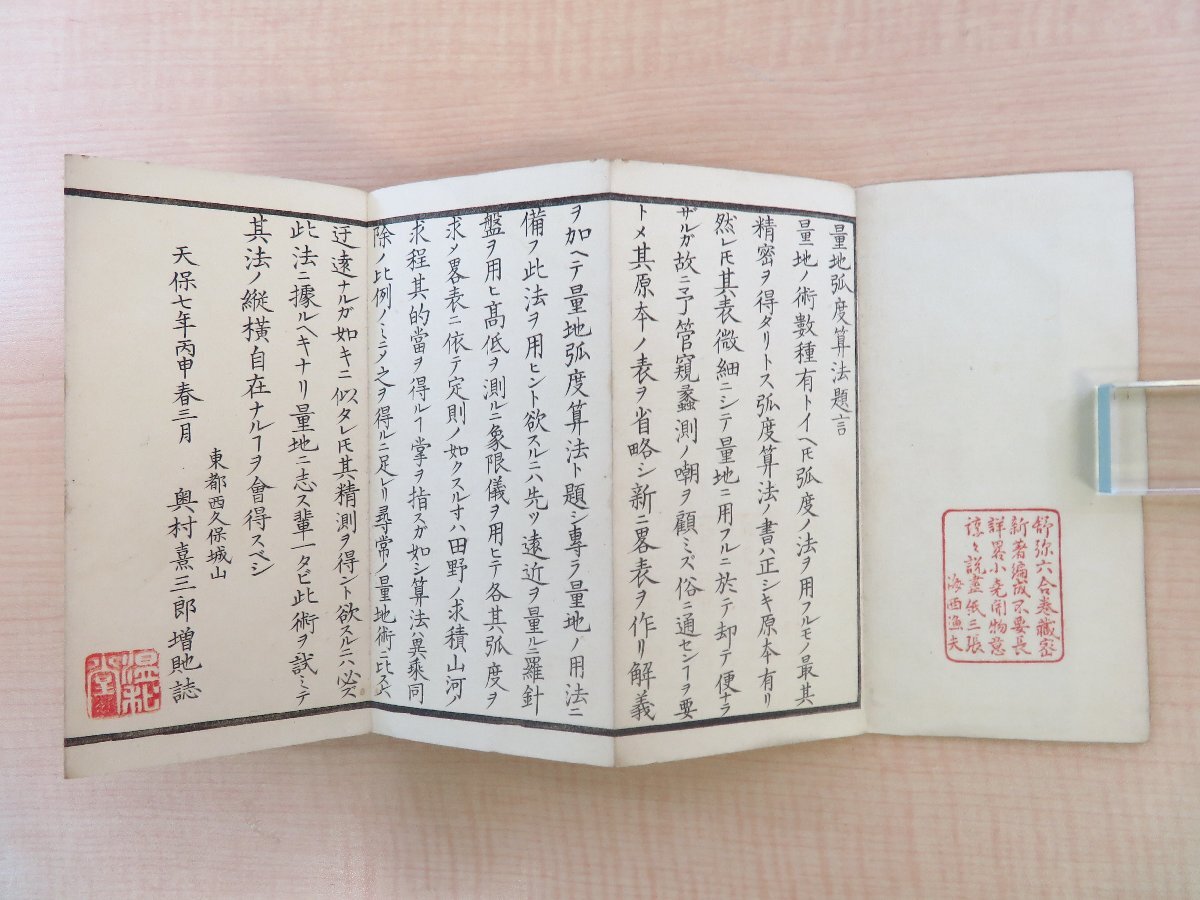 舒弥六合巻蔵密
新著編成不要長
詳畧小尭開物意
諄々説盡張三張
海西漁夫
量地弧度算法題言
量地ノ術數種有トイヘ𪜈弧度ノ法ヲ用フルモノ最其
精密ヲ得タリトス弧度算法ノ書ハ正シキ原本有リ
然レ𪜈其表微細ニシテ量地ニ用フルニ於テ却テ便ナラ
ザルガ故ニ予管窺蠡測ノ嘲ヲ顧ミズ俗ニ通センヿヲ要
トメ其原本ノ表ヲ省略シ新ニ畧表ヲ作リ解義
ヲ加ヘテ量地弧度算法ト題シ專ラ量地ノ用法ニ
備フ此法ヲ用ヒント欲スルニハ先ツ遠近ヲ量ルニ羅針
盤ヲ用ヒ高低ヲ測ルニ象限儀ヲ用ヒテ各其弧度ヲ
求メ畧表ニ依テ定則ノ如クスル寸ハ田野ノ求積山河ノ
求程其的當ヲ得ルヿ掌ヲ指スガ如シ算法ハ異乘同
除ノ比例ノミニメ之ヲ得ルニ足レリ尋常ノ量地術ニ比スレバ
迂遠ナルガ如キニ似タレ𪜈其精測ヲ得ント欲スルニハ必ズ
此法ニ據ルヘキナリ量地ニ志ス輩一タビ此術ヲ試ミテ
其法ノ縱横自在ナルヿヲ會得スベシ
東都西久保城山
天保七年丙申春三月 奥村熹三郎増𧵳誌
温松堂